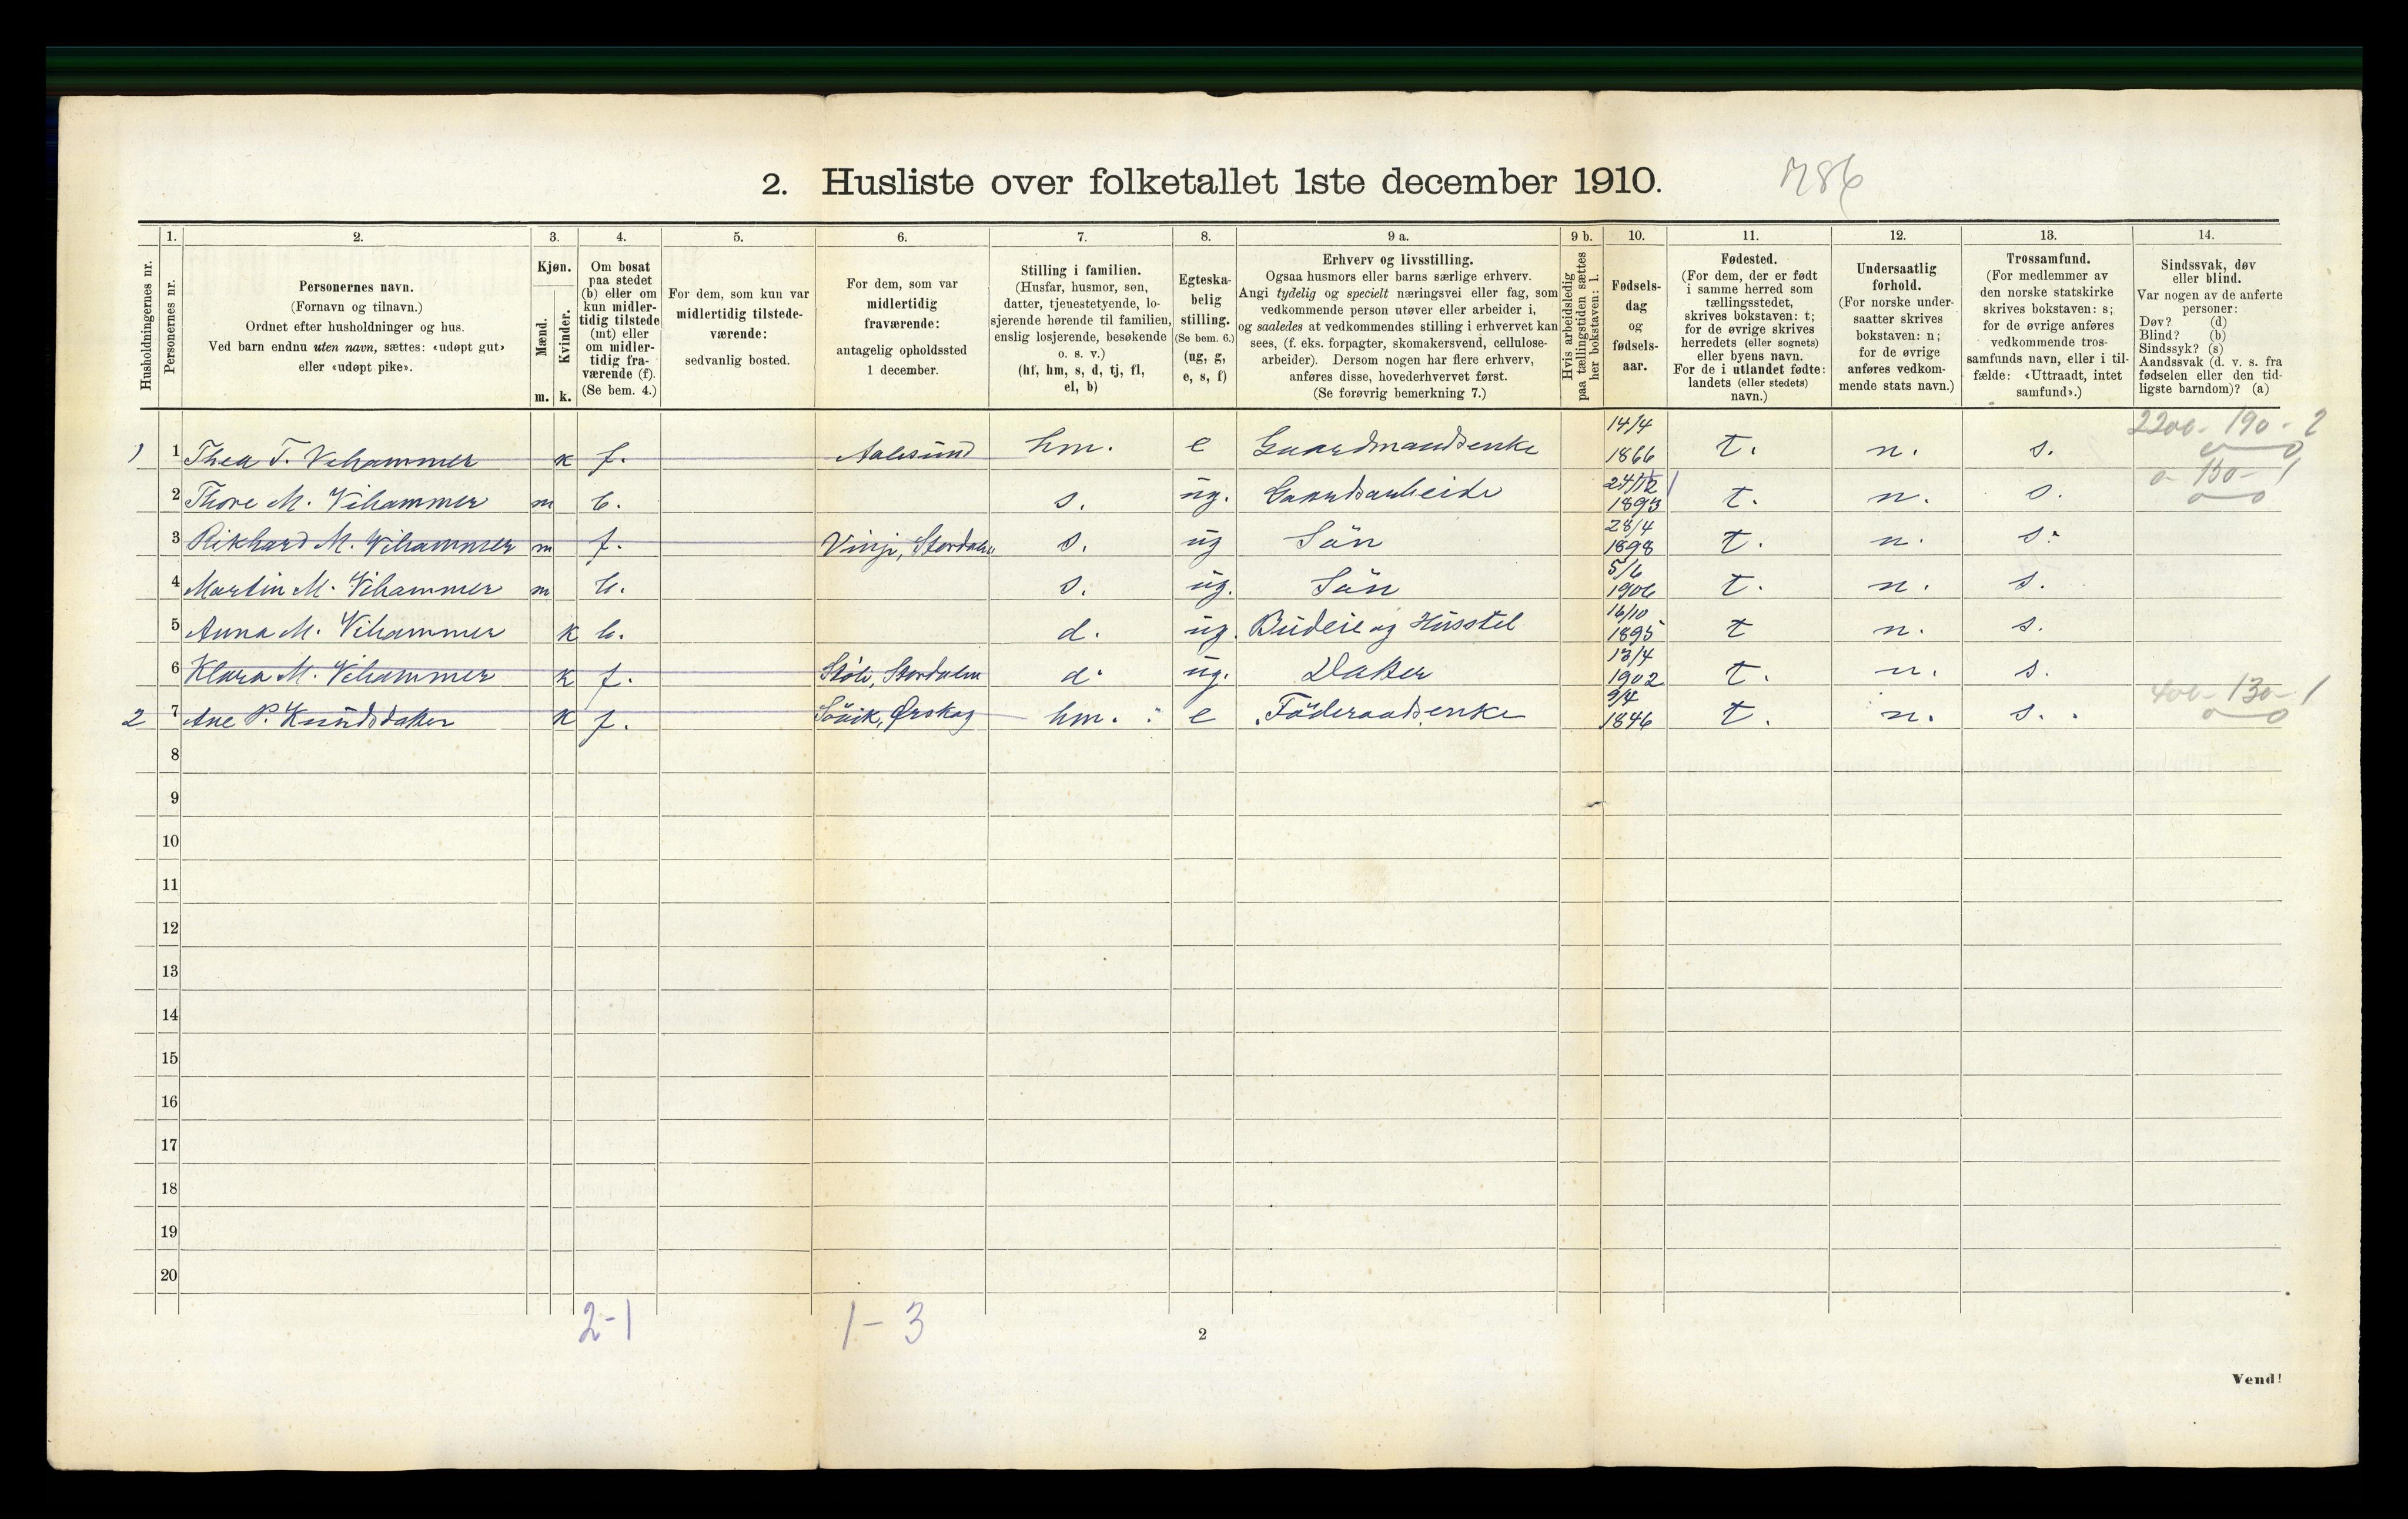 2. Husliste over folketallet 1ste december 1910.
786
1. 2. 3. 4. 5. 6. 7. 8. 9 a. 9 b. 10. 11. 12. 13. 14.
Husholdningernes nr.
Personernes nr.
Personernes navn.
(Fornavn og tilnavn.)
Ordnet efter husholdninger og hus.
Ved barn endnu uten navn, sættes: «udøpt gut»
eller «udøpt pike».
Kjøn.
Mænd.
Kvinder.
m. k.
Om bosat
paa stedet
(b) eller om
kun midler-
tidig tilstede
(mt) eller
om midler-
tidig fra-
værende (f).
(Se bem. 4.)
For dem, som kun var
midlertidig tilstede-
værende:
sedvanlig bosted.
For dem, som var
midlertidig
fraværende:
antagelig opholdssted
1 december.
Stilling i familien.
(Husfar, husmor, søn,
datter, tjenestetyende, lo-
sjerende hørende til familien,
enslig losjerende, besøkende
o. s. v.)
(hf, hm, s, d, tj, fl,
el, b)
Egteska-
belig
stilling.
(Se bem. 6.)
(ug, g,
e, s, f)
Erhverv og livsstilling.
Ogsaa husmors eller barns særlige erhverv.
Angi tydelig og specielt næringsvei eller fag, som
vedkommende person utøver eller arbeider i,
og saaledes at vedkommendes stilling i erhvervet kan
sees, (f. eks. forpagter, skomakersvend, cellulose-
arbeider). Dersom nogen har flere erhverv,
anføres disse, hovederhvervet først.
(Se forøvrig bemerkning 7.)
Hvis arbeidsledig
paa tællingstiden sættes
her bokstaven: l.
Fødsels-
dag
og
fødsels-
aar.
Fødested.
(For dem, der er født
i samme herred som
tællingsstedet,
skrives bokstaven: t;
for de øvrige skrives
herredets (eller sognets)
eller byens navn.
For de i utlandet fødte:
landets (eller stedets)
navn.)
Undersaatlig
forhold.
(For norske under-
saatter skrives
bokstaven: n;
for de øvrige
anføres vedkom-
mende stats navn.)
Trossamfund.
(For medlemmer av
den norske statskirke
skrives bokstaven: s;
for de øvrige anføres
vedkommende tros-
samfunds navn, eller i til-
fælde: «Uttraadt, intet
samfund».)
Sindssvak, døv
eller blind.
Var nogen av de anførte
personer:
Døv? (d)
Blind? (b)
Sindssyk? (s)
Aandssvak (d. v. s. fra
fødselen eller den tid-
ligste barndom)? (a)
2200 - 190 - 2
1 1 Thea T. Vihammer k f. Aalesund hm. e Gaardmandsenke 14/4 1866 t. n. s. 0 0
0 - 150 - 1
2 Thore M. Vihammer m b. s. ug. Gaardsarbeide 24/12 1893 t. n. s. 0 0
3 Rikhard M. Vihammer m f. Vinje, Stordalen s. ug Sön 28/4 1898 t. n. s.
4 Martin M. Vihammer m b. s. ug. Sön 5/6 1906 t. n. s.
5 Anna M. Vihammer k b. d. ug. Budeie og Husstel 16/10 1895 t n. s.
6 Klara M. Vihammer k f. Stordalen d. ug. Datter 13/4 1902 t. n. s.
400 - 130 - 1
2 7 Ane P. Knudsdatter k f. Sövik, Ørskog hm. e Föderaadsenke 9/4 1846 t. n. s. 0 0
8
9
10
11
12
13
14
15
16
17
18
19
20
2-1 1-3
2
Vend!